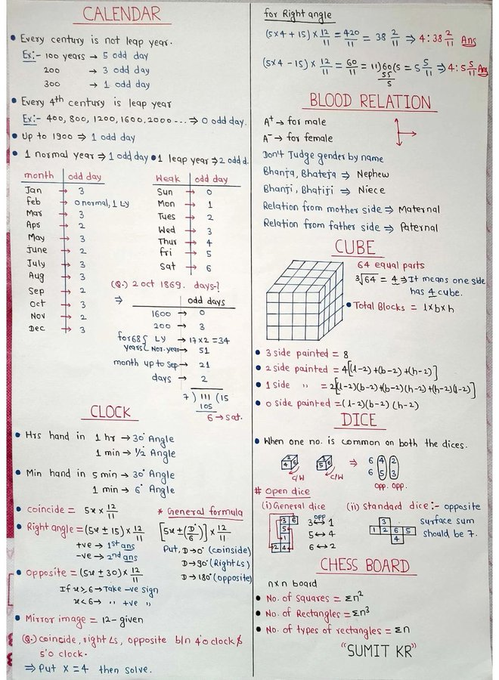 CALENDAR
• Every century is not leap year.
Ex:- 100 years → 5 odd day
200 → 3 odd day
300 → 1 odd day
• Every 4th century is leap year
Ex:- 400, 800, 1200, 1600, 2000 --- ⇒ 0 odd day.
• Up to 1900 ⇒ 1 odd day
• 1 normal year ⇒ 1 odd day • 1 leap year ⇒ 2 odd d.
month | odd day
Jan → 3
Feb → 0 normal, 1 LY
Mar → 3
Apr → 2
May → 3
June → 2
July → 3
Aug → 3
Sep → 2
Oct → 3
Nov → 2
Dec → 3
Weak | odd day
Sun → 0
Mon → 1
Tues → 2
Wed → 3
Thur → 4
Fri → 5
Sat → 6
(Q.) 2 oct 1869. days-?
⇒ odd days
1600 → 0
200 → 3
for 68 years { LY → 17×2 = 34
Nor. year → 51
month up to Sep → 21
days → 2
7) 111 (15
105
6 → sat.
CLOCK
• Hrs hand in 1 hr → 30° Angle
1 min → 1/2° Angle
• Min hand in 5 min → 30° Angle
1 min → 6° Angle
• coincide = 5x × 12/11
• Right angle = (5x ± 15) × 12/11
+ve → 1st ans
-ve → 2nd ans
• Opposite = (5x ± 30) × 12/11
If x > 6 → Take -ve sign
x < 6 → " +ve "
• Mirror image = 12 - given
* General formula
[5x ± (D/6)] × 12/11
Put, D → 0° (coinside)
D → 90° (Right ∠s)
D → 180° (opposite)
(Q.) coincide, right ∠s, opposite b/n 4'o clock &
5'o clock.
⇒ Put x = 4 then solve.
for Right angle
(5×4+15) × 12/11 = 420/11 = 38 2/11 ⇒ 4:38 2/11 Ans
(5×4-15) × 12/11 = 60/11 = 11)60(5 = 5 5/11 ⇒ 4:5 5/11 Ans
55
5
BLOOD RELATION
A+ → for male
A- → for female
Don't Judge gender by name
Bhanja, Bhateja ⇒ Nephew
Bhanji, Bhatiji ⇒ Niece
Relation from mother side ⇒ Maternal
Relation from father side ⇒ Paternal
CUBE
64 equal parts
∛64 = 4 ⇒ It means one side
has 4 cube.
• Total Blocks = l×b×h
• 3 side painted = 8
• 2 side painted = 4[(l-2)+(b-2)+(h-2)]
• 1 side " = 2[(l-2)(b-2)+(b-2)(h-2)+(h-2)(l-2)]
• 0 side painted = (l-2)(b-2)(h-2)
DICE
• When one no. is common on both the dices.
C/W C/W ⇒ 6 4 2
6 5 3
opp. opp.
# Open dice
(i) General dice
opp
3 ↔ 1
5 ↔ 4
6 ↔ 2
(ii) Standard dice:- opposite
surface sum
should be 7.
3
1 2 6 5
4
CHESS BOARD
n×n board
• No. of squares = Σn²
• No. of Rectangles = Σn³
• No. of types of rectangles = Σn
"SUMIT KR"